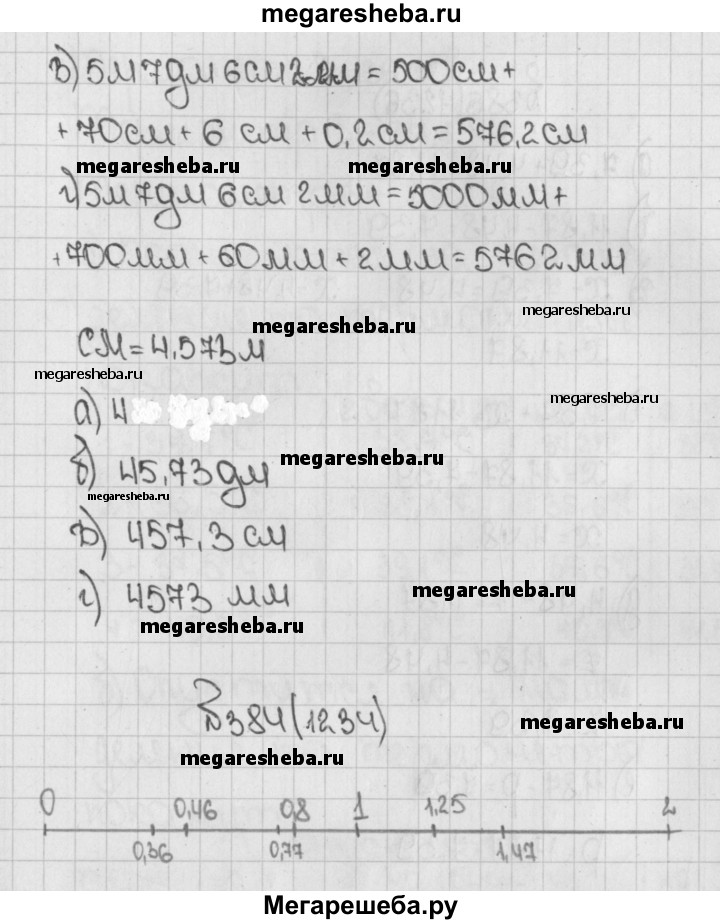 megaresheba.ru
в) 5м 7дм 6см 2мм = 500см +
+ 70см + 6 см + 0,2см = 576,2см
megaresheba.ru megaresheba.ru
г) 5м 7дм 6см 2мм = 5000мм +
+ 700мм + 60мм + 2мм = 5762мм
megaresheba.ru
megaresheba.ru
СМ = 4,573м
megaresheba.ru
megaresheba.ru
а) 4
megaresheba.ru
б) 45,73дм
megaresheba.ru
в) 457,3 см
megaresheba.ru
г) 4573 мм
megaresheba.ru
№384(1234)
megaresheba.ru
megaresheba.ru
0 0,46 0,8 1 1,25 2
0,36 0,77 1,47
Мегарешеба.ру